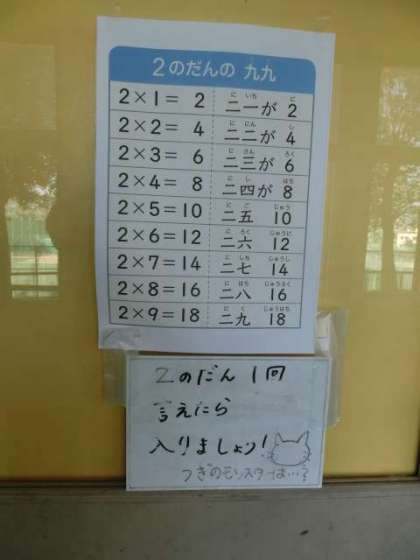 2のだんの 九九
2×1= 2 二一が 2
2×2= 4 二二が 4
2×3= 6 二三が 6
2×4= 8 二四が 8
2×5=10 二五 10
2×6=12 二六 12
2×7=14 二七 14
2×8=16 二八 16
2×9=18 二九 18
2のだん 1回
言えたら
入りましょう!
つぎのモンスターは…?